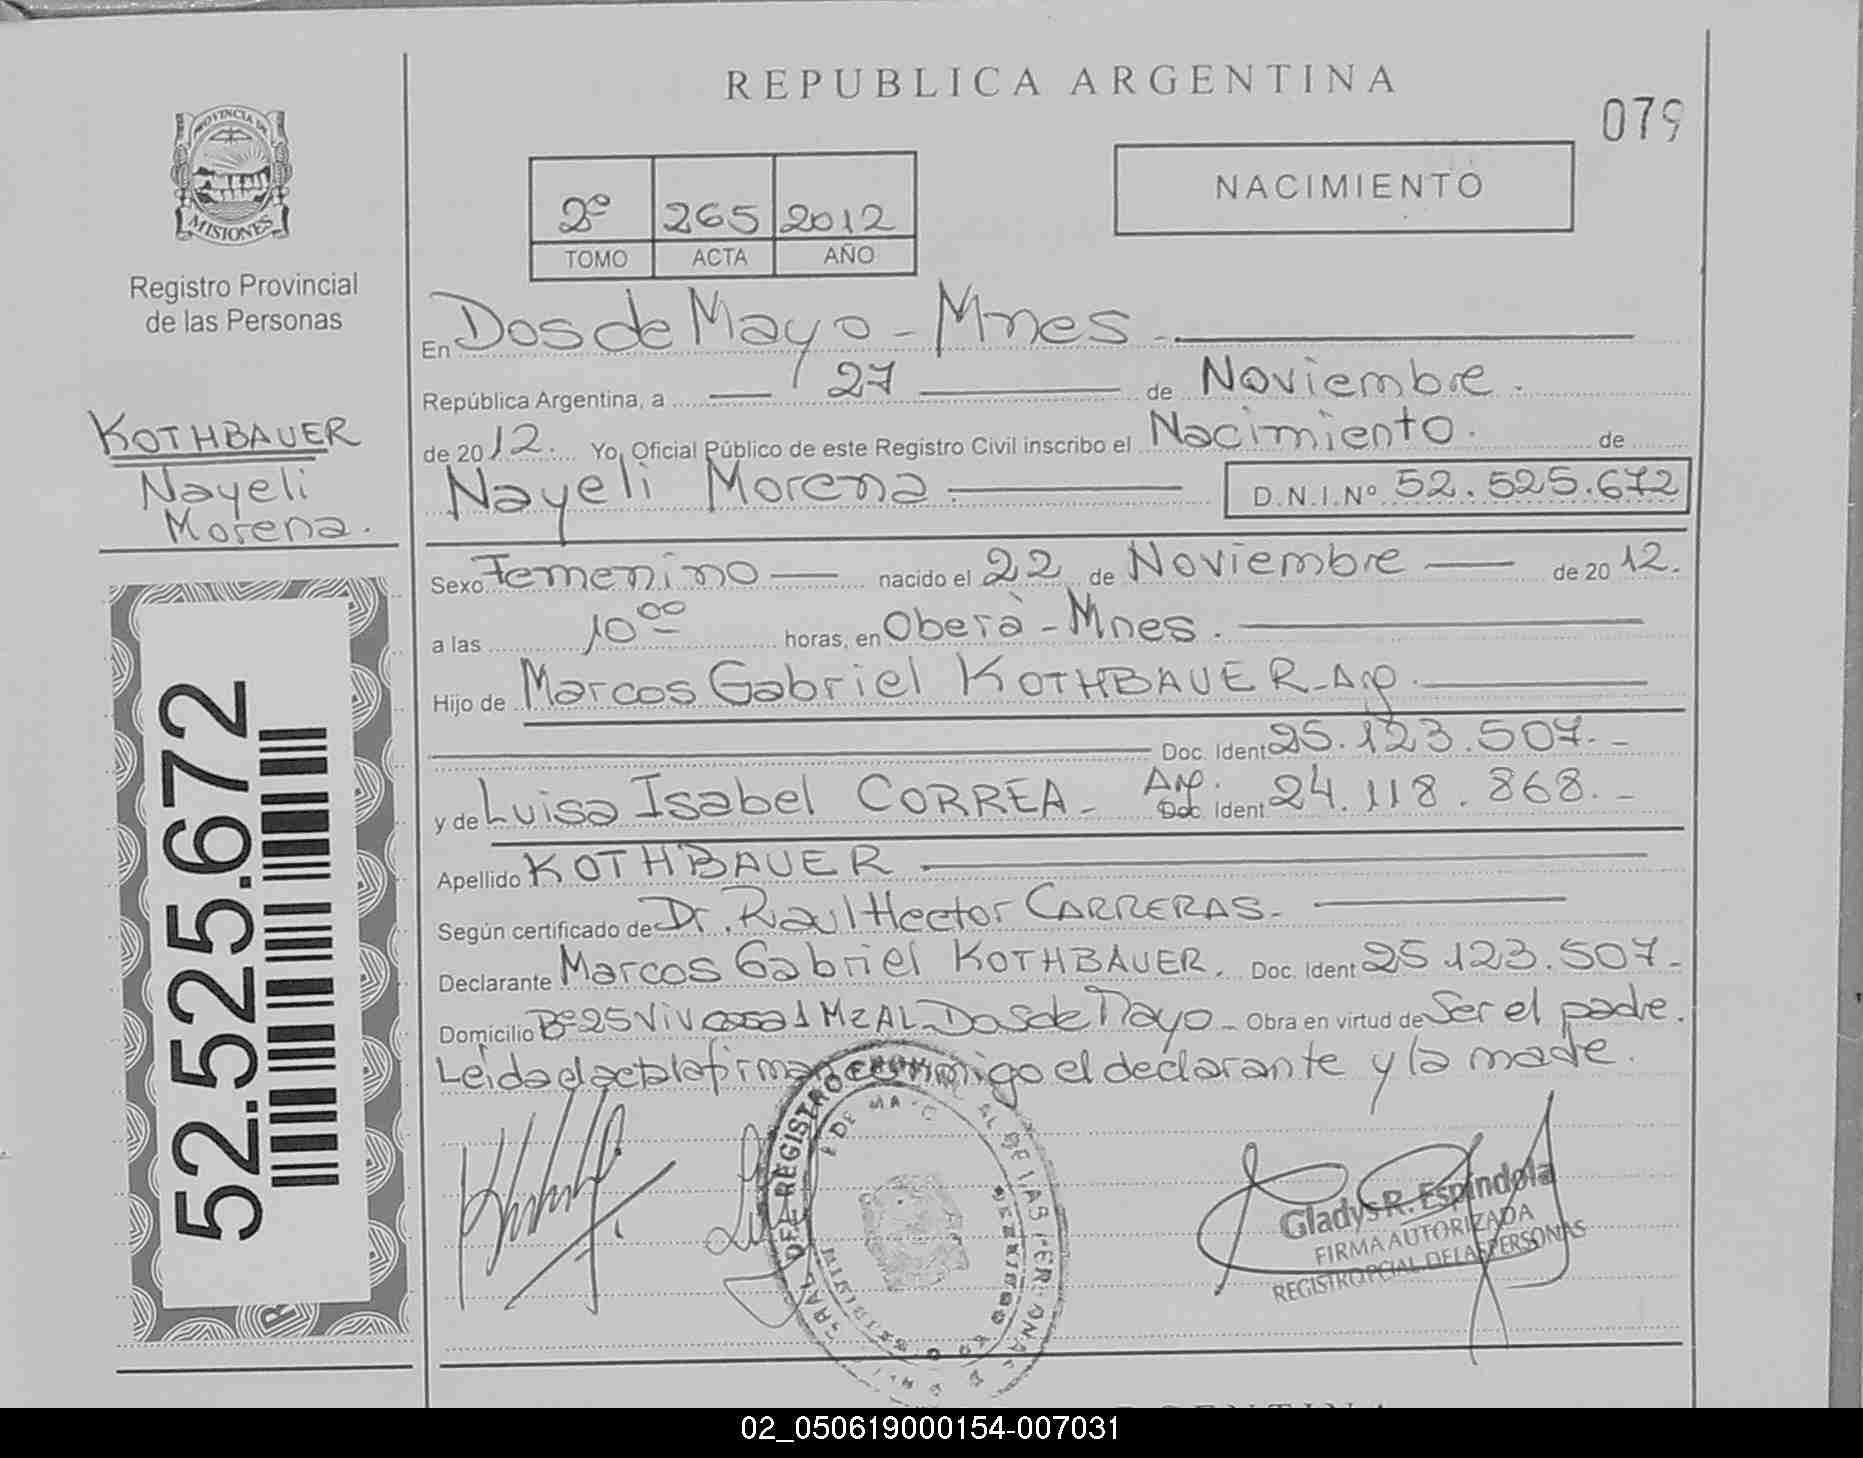 REPUBLICA ARGENTINA
079
PROVINCIA DE
MISIONES
Registro Provincial
de las Personas
2º 265 2012
TOMO ACTA AÑO
NACIMIENTO
KOTHBAUER
Nayeli
Morena.
52.525.672
En Dos de Mayo - Mnes
República Argentina, a 27 de Noviembre.
de 2012. Yo, Oficial Público de este Registro Civil inscribo el Nacimiento. de
Nayeli Morena. D.N.I.Nº 52.525.672
Sexo Femenino nacido el 22 de Noviembre de 2012.
a las 10 00 horas, en Oberà - Mnes.
Hijo de Marcos Gabriel KOTHBAUER - Arg.
Doc. Ident 25.123.507.-
y de Luisa Isabel CORREA - Arg. Doc. Ident 24.118.868.-
Apellido KOTHBAUER
Según certificado de Dr. Raul Hector CARRERAS.
Declarante Marcos Gabriel KOTHBAUER. Doc. Ident 25.123.507-
Domicilio Bº 25 Viv casa 1 Mz AL - Dos de Mayo - Obra en virtud de Ser el padre.
Leida el acta la firma conmigo el declarante y la madre.
DEL REGISTRO
DE LAS PERSONAS
Gladys R. Espíndola
FIRMA AUTORIZADA
REGISTRO PCIAL. DE LAS PERSONAS
02_050619000154-007031